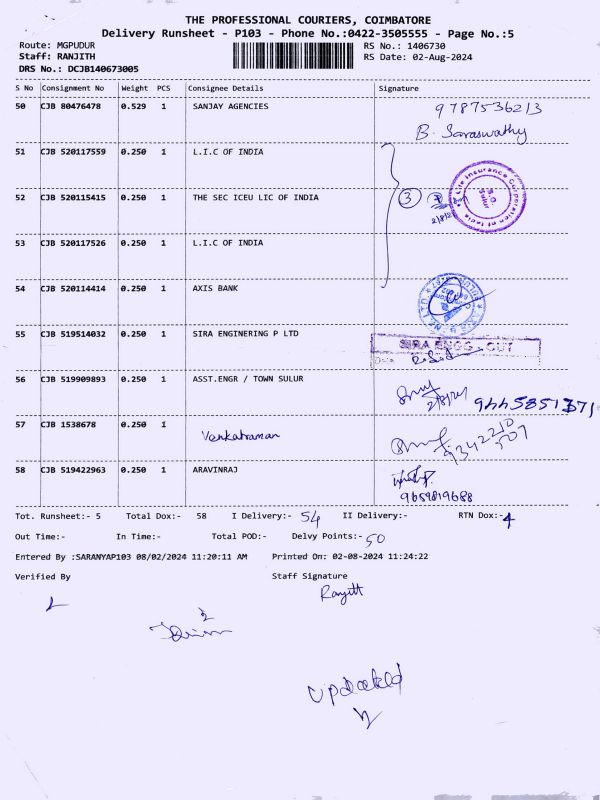 THE PROFESSIONAL COURIERS, COIMBATORE
Delivery Runsheet - P103 - Phone No.:0422-3505555 - Page No.:5
Route: MGPUDUR
RS No.: 1406730
Staff: RANJITH
RS Date: 02-Aug-2024
DRS No.: DCJB140673005
S No Consignment No Weight PCS Consignee Details Signature
50 CJB 80476478 0.529 1 SANJAY AGENCIES 9787536213
B. Saraswathy
51 CJB 520117559 0.250 1 L.I.C OF INDIA
52 CJB 520115415 0.250 1 THE SEC ICEU LIC OF INDIA 3
Life Insurance Corporation of India
S.O.
Sulur
53 CJB 520117526 0.250 1 L.I.C OF INDIA
54 CJB 520114414 0.250 1 AXIS BANK
55 CJB 519514032 0.250 1 SIRA ENGINERING P LTD
SIRA ENGG OUT
56 CJB 519909893 0.250 1 ASST.ENGR / TOWN SULUR
2/8/24 9445851371
57 CJB 1538678 0.250 1 Venkatraman
9342210
507
58 CJB 519422963 0.250 1 ARAVINRAJ
9659819688
Tot. Runsheet:- 5 Total Dox:- 58 I Delivery:- 54 II Delivery:- RTN Dox:- 4
Out Time:- In Time:- Total POD:- Delvy Points:- 50
Entered By :SARANYAP103 08/02/2024 11:20:11 AM Printed On: 02-08-2024 11:24:22
Verified By Staff Signature
Updated